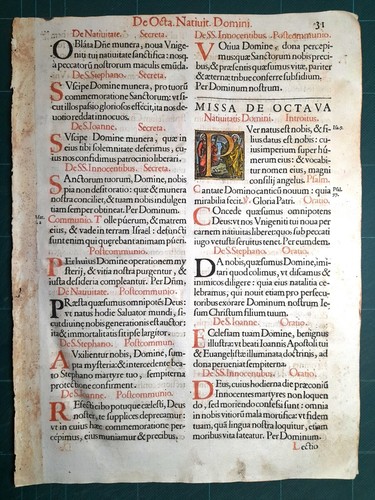 De Octa. Natiuit. Domini. 31
De Natiuitate. Secreta.
Oblata Dñe munera, noua Vnigeniti
tui natiuitate sanctifica: nosq;
a peccatorũ nostrorum maculis emũda.
De S. Stephano. Secreta.
Suscipe Domine munera, pro tuorũ
commemoratione Sanctorum: vt sicut
illos passio gloriosos effecit, ita nos deuotio
reddat innocuos.
De S. Ioanne. Secreta.
Suscipe Domine munera, quæ in
eius tibi solemnitate deferimus, cuius
nos confidimus patrocinio liberari.
De SS. Innocentibus. Secreta.
Sanctorum tuorum, Domine, nobis
pia non desit oratio: quæ & munera
nostra conciliet, & tuam nobis indulgentiam
semper obtineat. Per Dominum.
Communio. Tolle puerum, & matrem
eius, & vade in terram Israel: defuncti
sunt enim qui quærebant animam pueri.
Postcommunio.
Per huius Domine operationem mysterij,
& vitia nostra purgentur, &
iusta desideria compleantur. Per Dñm.
De Natiuitate. Postcommunio.
Præsta quæsumus omnipotẽs Deus:
vt natus hodie Saluator mundi, sicut
diuinæ nobis generationis est auctor:
ita & immortalitatis sit ipse largitor.
De S. Stephano. Postcommun.
Auxilientur nobis, Domine, sumpta
mysteria: & intercedente beato
Stephano martyre tuo, sempiterna
protectione confirment.
De S. Ioanne. Postcommunio.
Refecti cibo potuque cælesti, Deus
noster, te supplices deprecamur:
vt in cuius hæc commemoratione percepimus,
eius muniamur & precibus.
De SS. Innocentibus. Postcommunio.
Votiua Domine, dona percepimus:
quæ Sanctorum nobis precibus,
& præsentis quæsumus vitæ, pariter
& æternæ tribue conferre subsidium.
Per Dominum nostrum.
MISSA DE OCTAVA
Natiuitatis Domini. Introitus.
Puer natus est nobis, & filius
datus est nobis: cuius
imperium super humerum
eius: & vocabitur
nomen eius, magni
consilij angelus. Psalm.
Cantate Domino canticũ nouum: quia
mirabilia fecit. V. Gloria Patri. Oratio.
Concede quæsumus omnipotens
Deus: vt nos Vnigeniti tui noua per
carnem natiuitas liberet: quos sub peccati
iugo vetusta seruitus tenet. Per eumdem.
De S. Stephano. Oratio.
Da nobis, quæsumus Domine, imitari
quod colimus, vt discamus &
inimicos diligere: quia eius natalitia celebramus,
qui nouit etiam pro persecutoribus
exorare Dominum nostrum Iesum
Christum filium tuum.
De S. Ioanne. Oratio.
Ecclesiam tuam Domine, benignus
illustra: vt beati Ioannis Apostoli tui
& Euangelistæ illuminata doctrinis, ad
dona perueniat sempiterna.
De SS. Innocentibus. Oratio.
Deus, cuius hodierna die præconiũ
Innocentes martyres non loquendo,
sed moriẽdo confessi sunt: omnia
in nobis vitiorũ mala mortifica: vt fidem
tuam, quã lingua nostra loquitur, etiam
moribus vita fateatur. Per Dominum.
Lectio